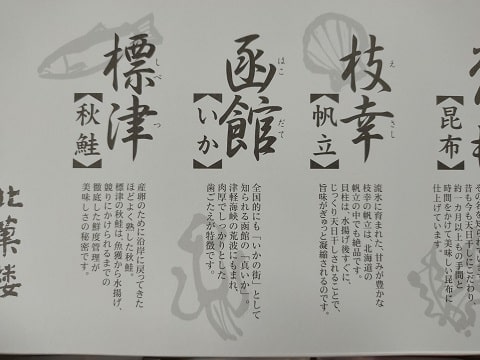 【昆布】
昔も今も天日干しにこだわり、
約一カ月以上もの手間と
時間をかけて美味しい昆布に
仕上げています。
枝幸
えさし
【帆立】
流氷に育まれた、甘みが豊かな
枝幸の帆立は、北海道の
帆立の中でも絶品です。
貝柱は、水揚げ後すぐに、
じっくり天日干しされることで、
旨味がぎゅっと凝縮されるのです。
函館
はこだて
【いか】
全国的にも「いかの街」として
知られる函館の「真いか」
津軽海峡の荒波にもまれ、
肉厚でしっかりとした
歯ごたえが特徴です。
標津
しべつ
【秋鮭】
産卵のために沿岸に戻ってきた
ほどよく熟した秋鮭。
標津の秋鮭は、魚獲から水揚げ、
競りにかけられるまでの
徹底した鮮度管理が
美味しさの秘密です。
北菓楼